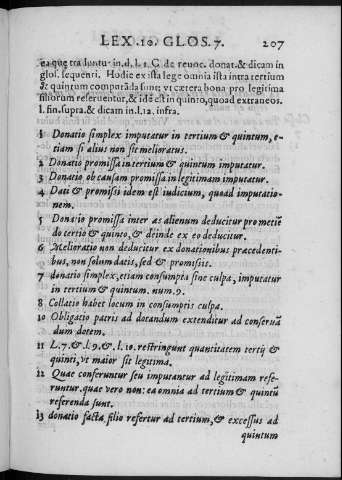 LEX .10. GLOS. 7. 207
ea que tra luntur in. d. l. 1. C. de reuoc. donat. & dicam in
glos. sequenti. Hodie ex ista lege omnia ista intra tertium
& quintum computāda sunt; vt cætera bona pro legitima
filiorum reseruentur, & idē est in quinto, quoad extraneos.
l. fin. supra. & dicam in. l. 12. infra.
1 Donatio simplex imputatur in tertium & quintum, e-
tiam si alius non sit melioratus.
2 Donatio promissa in tertium & quintum imputatur.
3 Donatio ob causam promissa in legitimam imputatur.
4 Dati & promissi idem est iudicium, quoad imputatio-
nem.
5 Donatio promissa inter æs alienum deducitur pro metiē
do tertio & quinto, & deinde ex eo deducitur.
6 Melioratio non deducitur ex donationibus præcedenti-
bus, non solum datis, sed & promissis.
7 donatio simplex, etiam consumpta sine culpa, imputatur
in tertium & quintum. num. 9.
8 Collatio habet locum in consumptis culpa.
10 Obligatio patris ad dotandum extenditur ad conseruā
dum dotem.
11 L. 7. & l. 9. & l. 10. restringunt quantitatem tertij &
quinti, vt maior sit legitima.
12 Quæ conferuntur seu imputantur ad legitimam refe-
runtur. quæ vero non: ea omnia ad tertium & quintū
referenda sunt.
13 donatio facta filio refertur ad tertium, & excessus ad
quintum